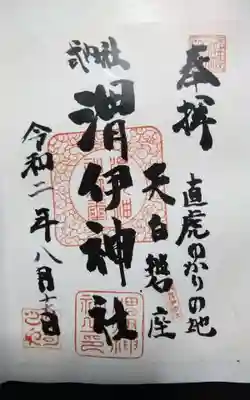 奉拝
直虎ゆかりの地
天白磐座
式内社
渭伊神社
令和二年八月十一日